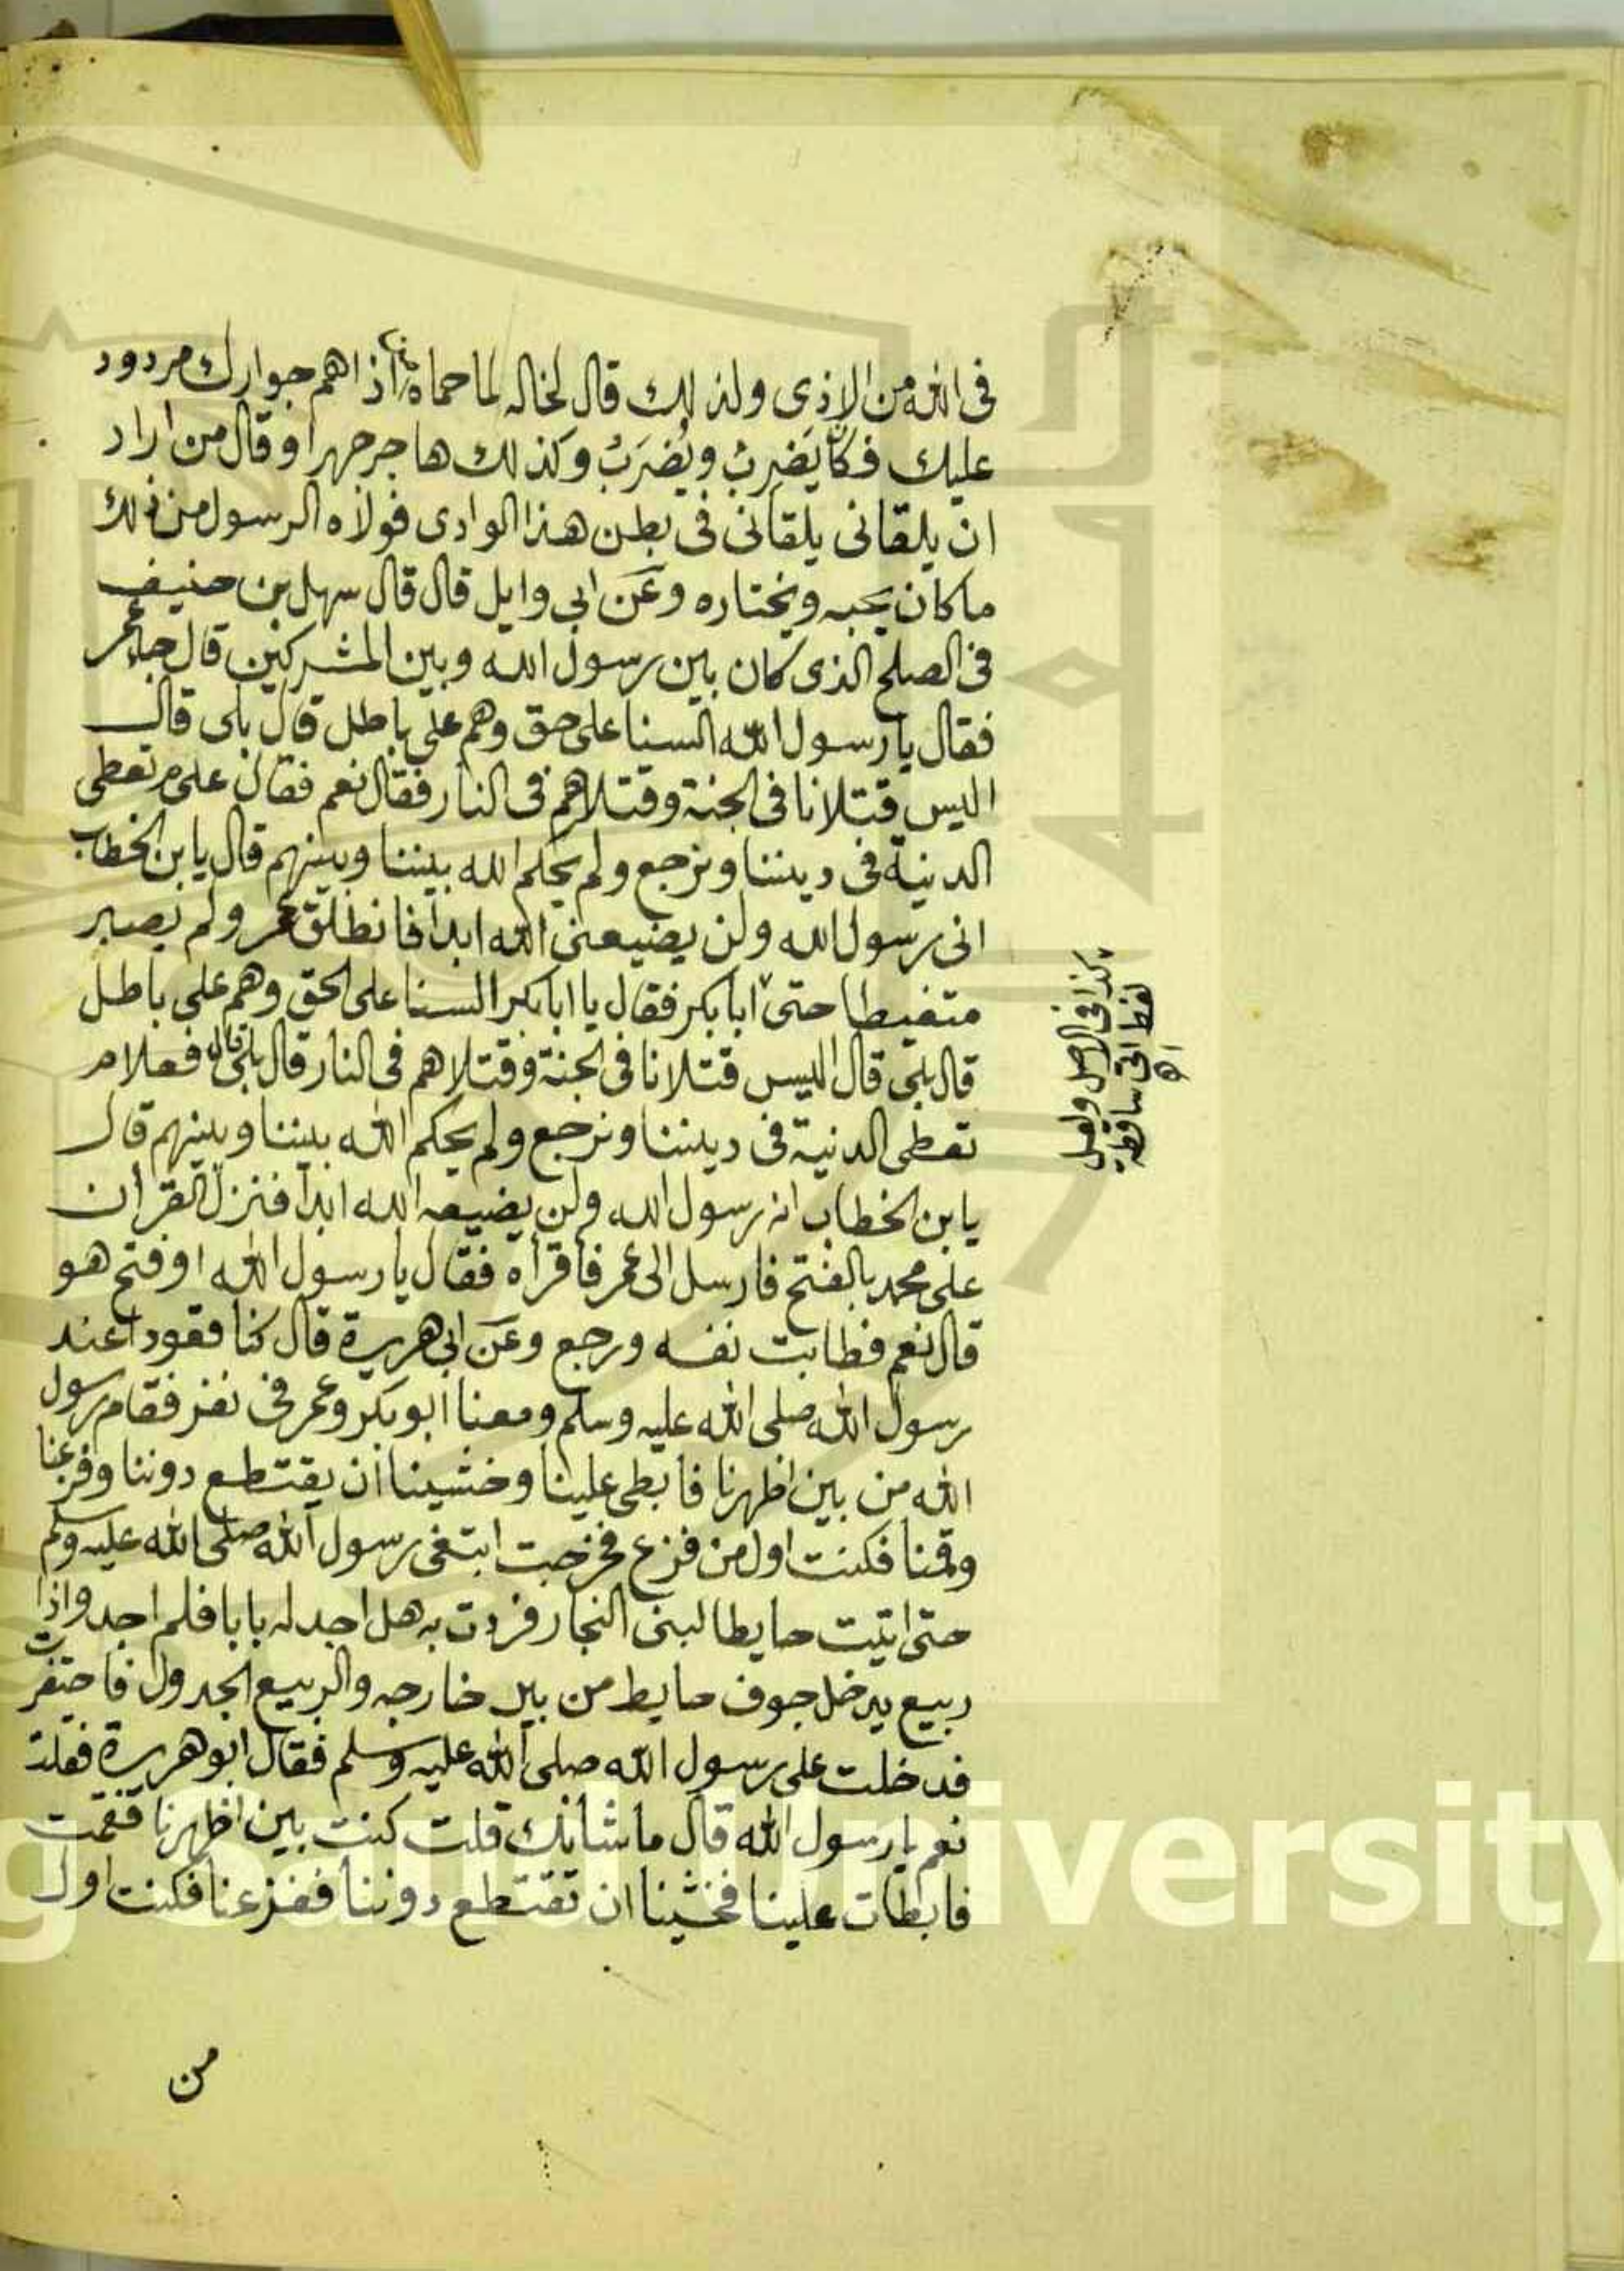 في الله من الاذى ولذلك قال لخاله لما حماه من اذاهم جوارك مردود
عليك فكان يَضرِبُ ويُضرَبُ وكذلك هاجر جهرا وقال من اراد
ان يلقاني يلقاني في بطن هذا الوادي فولاه الرسول من ذلك
ما كان يحبه ويختاره وعن ابي وايل قال قال سهل بن حنيف
في الصلح الذي كان بين رسول الله وبين المشركين قال جاء عمر
فقال يا رسول الله السنا على حق وهم على باطل قال بلى قال
اليس قتلانا في الجنة وقتلاهم في النار فقال نعم فقال على م نعطي
الدنية في ديننا ونرجع ولم يحكم الله بيننا وبينهم قال يا بن الخطاب
اني رسول الله ولن يضيعني الله ابدا فانطلق عمر ولم يصبر
متغيظا حتى ابا بكر فقال يا ابا بكر السنا على الحق وهم على باطل
قال بلى قال اليس قتلانا في الجنة وقتلاهم في النار قال بلى قال فعلام
نعطي الدنية في ديننا ونرجع ولم يحكم الله بيننا وبينهم قال
يا بن الخطاب انه رسول الله ولن يضيعه الله ابدا فنزل القرأن
على محمد بالفتح فارسل الى عمر فاقرأه فقال يا رسول الله اوفتح هو
قال نعم فطابت نفسه ورجع وعن ابي هريرة قال كنا قعودا عند
رسول الله صلى الله عليه وسلم ومعنا ابو بكر وعمر في نفر فقام رسول
الله من بين اظهرنا فابطى علينا وخشينا ان يقتطع دوننا وفزعنا
وقمنا فكنت اول من فزع فخرجت ابتغي رسول الله صلى الله عليه وسلم
حتى اتيت حايطا لبني النجار فزدت به هل اجد له بابا فلم اجد واذا
ربيع يدخل جوف حايط من بير خارجه والربيع الجدول فاحتفرت
فدخلت على رسول الله صلى الله عليه وسلم فقال ابو هريرة فقلت
نعم يا رسول الله قال ما شانك قلت كنت بين اظهرنا فقمت
فابطات علينا فخشينا ان تقتطع دوننا ففزعنا فكنت اول
من
كذا في الاصل ولعل
لفظ اتى ساقطة
اه
University